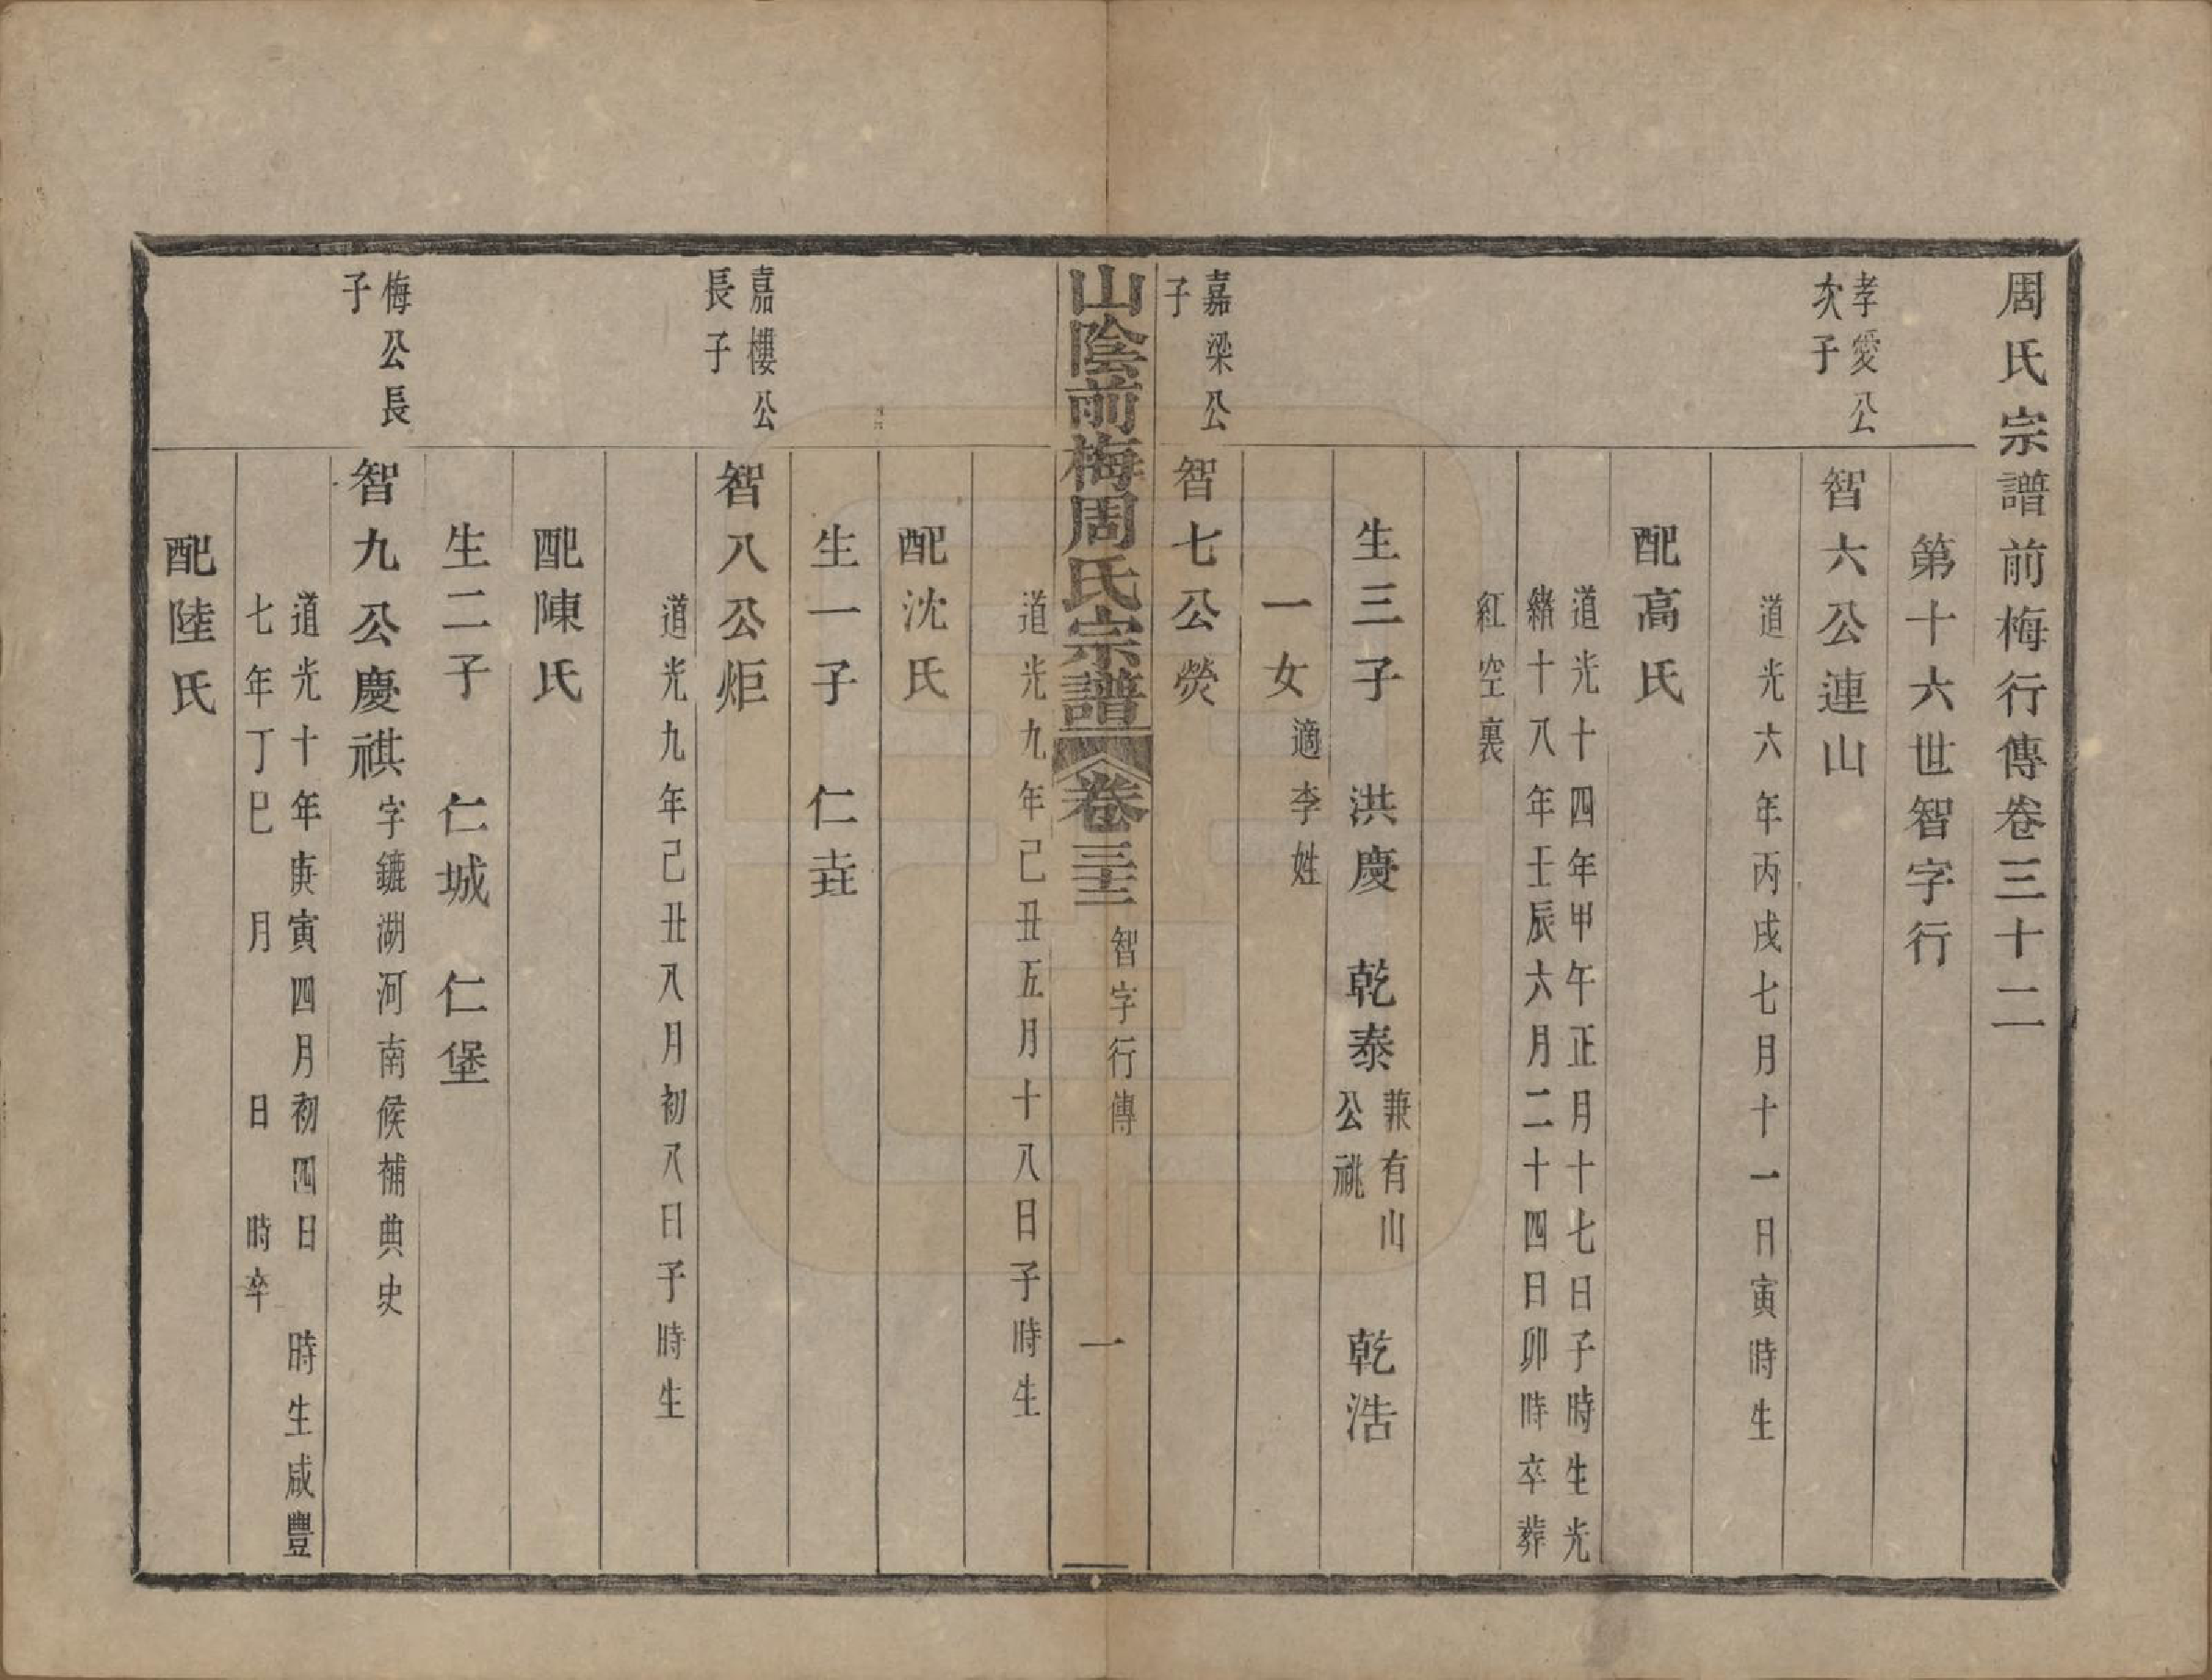 周氏宗譜前梅行傳卷三十二
第十六世智字行
孝愛公
次子
智六公連山
道光六年丙戌七月十一日寅時生
配高氏
道光十四年甲午正月十七日子時生光
緒十八年壬辰六月二十四日卯時卒葬
紅空裏
生三子 洪慶 乾泰
兼有山
公祧
乾浩
一女
適李姓
嘉梁公
子
智七公熒
山陰前梅周氏宗譜
卷三十二
智字行傳
一
道光九年己丑五月十八日子時生
配沈氏
生一子 仁垚
嘉樓公
長子
智八公炬
道光九年己丑八月初八日子時生
配陳氏
生二子 仁城 仁堡
梅公長
子
智九公慶祺
字鑣湖河南候補典史
道光十年庚寅四月初四日 時生咸豐
七年丁巳 月 日 時卒
配陸氏